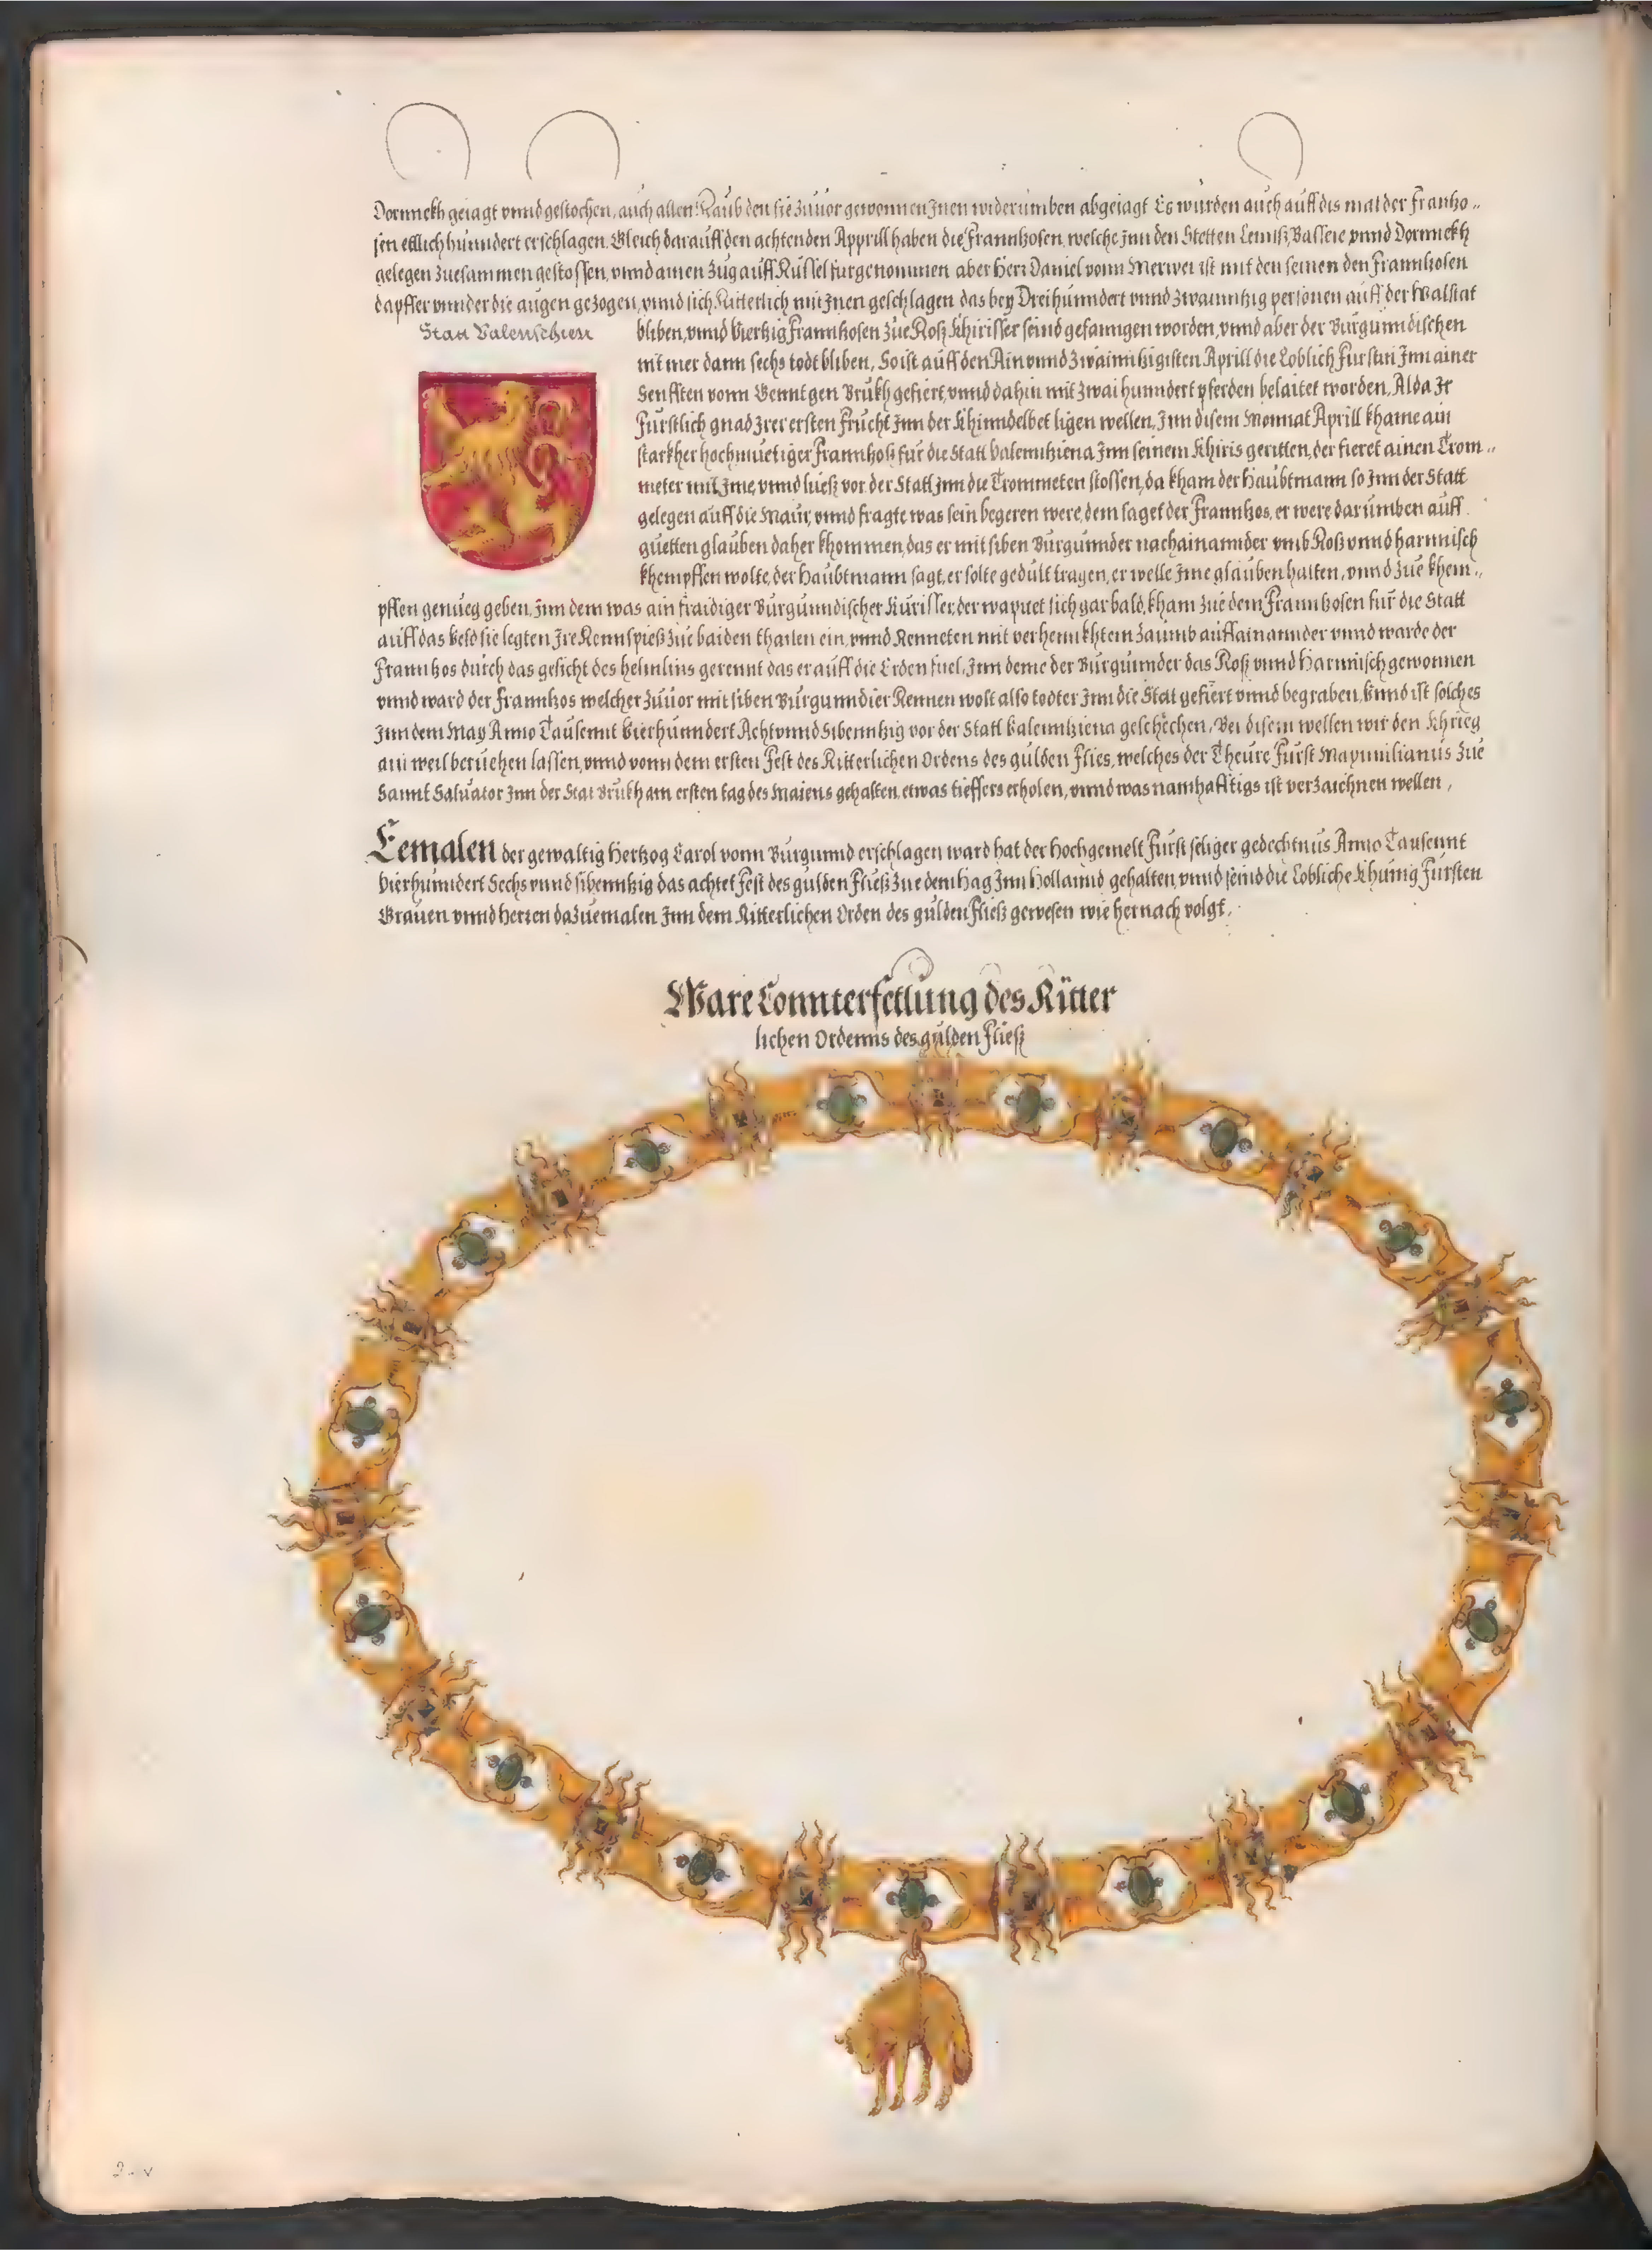 Dornnekh geiagt vnnd gestochen, auch allen Raub den sie zůuor gewonnen Jnen widerumben abgeiagt Es wurden auch auff dis mal der Franntzo..
sen etlich hunndert erschlagen. Gleich darauff den achtenden Apprill haben die Frannkosen, welche Jnn den Stetten vnnd Dornnekh
gelegen zuesammen gestossen, vnnd ainen zug auff Küssel furgenommen aber Herr Daniel vonn Merwei ist mit den seinen den Frannkosen
dapffer vnnder die augen gezogen, vnnd sich Ritterlich mit Jnen geschlagen das bey Dreihunndert vnnd zwainntzig personen auff der Walstat
Statt Valenschien
bliben, vnnd Viertzig Franntzosen zue Roß Khirisser seind gefanngen worden, vnnd aber der Burgunndischen
nit mer dann sechs todt bliben, So ist auff den Ain vnnd zwainntzigisten Aprill die Loblich Furstin Jnn ainer
Sennften vonn Gennt gen Brukh gefiert, vnnd dahin mit zwai hunndert pferden belaitet worden, Alda Jr
Furstlich gnad Jrer ersten Frucht Jnn der Khinndelbet ligen wellen, Jnn disem Monnat Aprill khame ain
starkher hochmuetiger Franntzoß fur die Statt Valenntziena Jnn seinem Khiris geritten, der fieret ainen Trom..
meter mit Jme, vnnd ließ vor der Statt Jnn die Trommeten stossen, da kham der Haubtmann so Jnn der Statt
gelegen auff die Maur, vnnd fragte was sein begeren were, dem saget der Franntzos, er were darumben auff
guetten glauben daher khommen, das er mit siben Burgunnder nachainannder vmb Roß vnnd harnnisch
khempffen wolte, der Haubtmann sagt, er solte gedult tragen, er welle Jme glauben halten, vnnd zue khem..
pffen genueg geben, Jnn dem was ain fraidiger Burgunndischer Kurisser, der wapnet sich gar bald, kham zue dem Franntzosen fur die Statt
auff das Veld sie legten Jre Rennspieß zue baiden thailen ein, vnnd Renneten mit verhennkhtem zaumb auffainannder vnnd warde der
Franntzos durch das gesicht des helmlins gerennt das er auff die Erden fuel, Jnn deme der Burgunnder das Roß vnnd Harnnisch gewonnen
vnnd ward der Franntzos welcher zuuor mit siben Burgunndier Rennen wolt also todter Jnn die Stat gefiert vnnd begraben, Vnnd ist solches
Jnn dem May Anno Tausennt Vierhunndert Acht vnnd Sibenntzig vor der Statt Valenntziena geschechen, Bei disem wellen wir den Khrieg
ain weil beruehen lassen, vnnd vonn dem ersten Fest des Ritterlichen Ordens des gulden Flies, welches der Theure Furst Maximilianus zue
Sannt Saluator Jnn der Stat Brukh am ersten tag des Maiens gehalten, etwas tieffers erholen, vnnd was namhafftigs ist verzaichnen wellen,
Eemalen der gewaltig Hertzog Carol vonn Burgunnd erschlagen ward hat der Hochgemelt Furst seliger gedechtnus Anno Tausennt
Vierhunndert Sechs vnnd sibenntzig das achtet Fest des gulden Fließ zue dem Hag Jnn Hollannd gehalten, vnnd seind die Lobliche Khunig Fursten
Grauen vnnd herren dazuemalen Jnn dem Ritterlichen Orden des gulden Fließ gewesen wie hernach volgt.
Ware Connterfettung des Ritter
lichen Ordenns des gulden Fließ